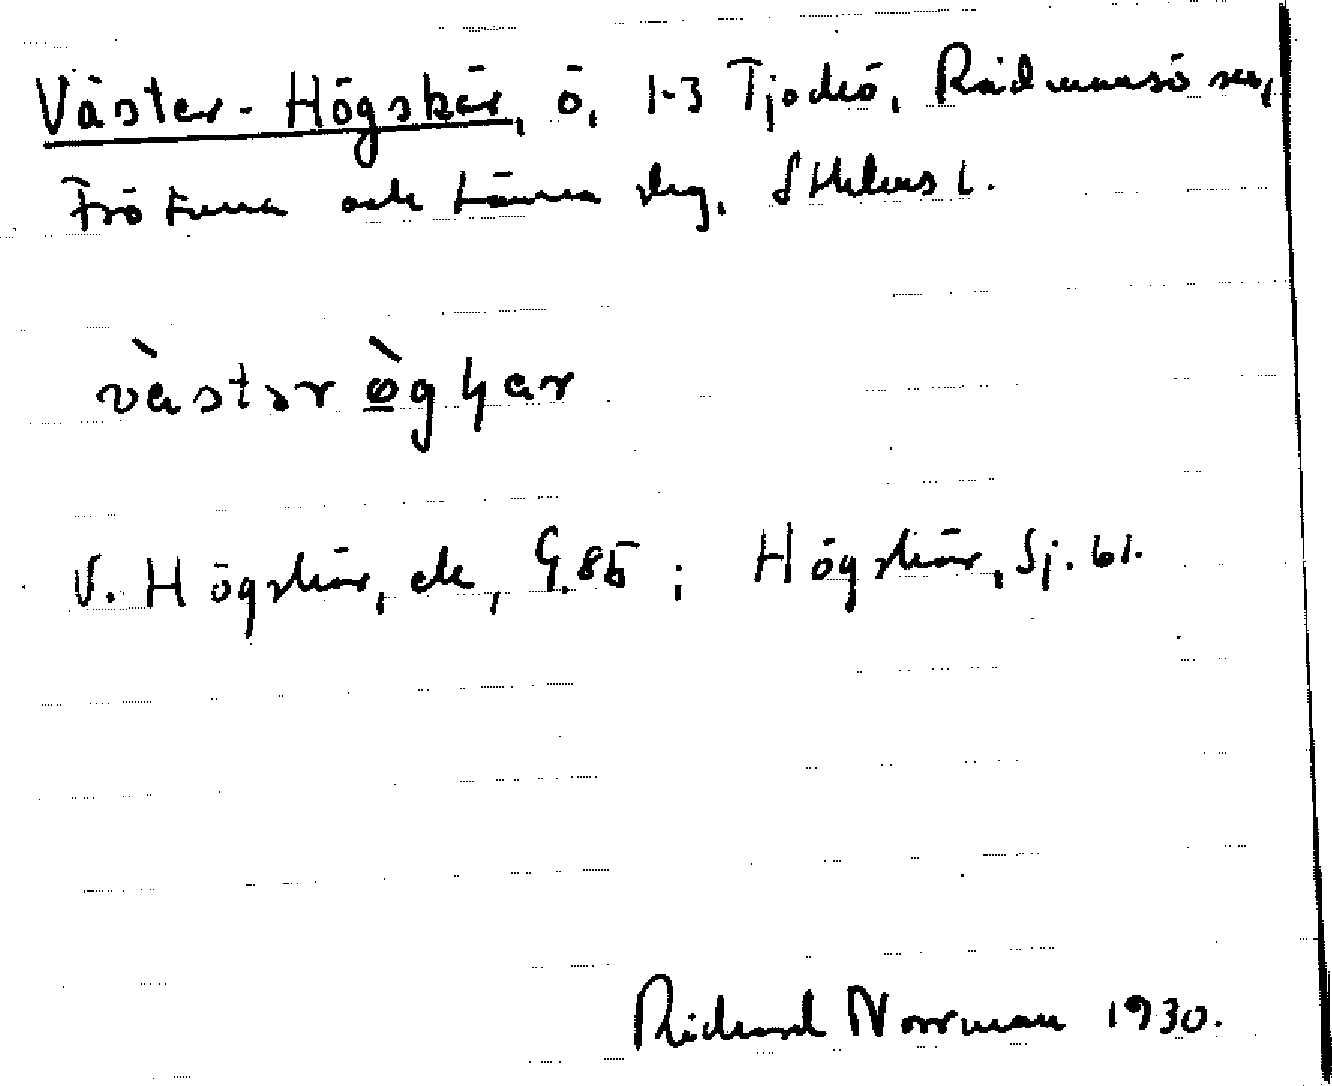 Väster-Högskär, ö, 1-3 Tjockö, Rådmansö sn,
Frötuna och Länna slg, Sthlms l.
vàstər ò̲gꞕar
V. Högskär, ek, G.85; Högskär, Sj. 61.
Richard Norrman 1930.